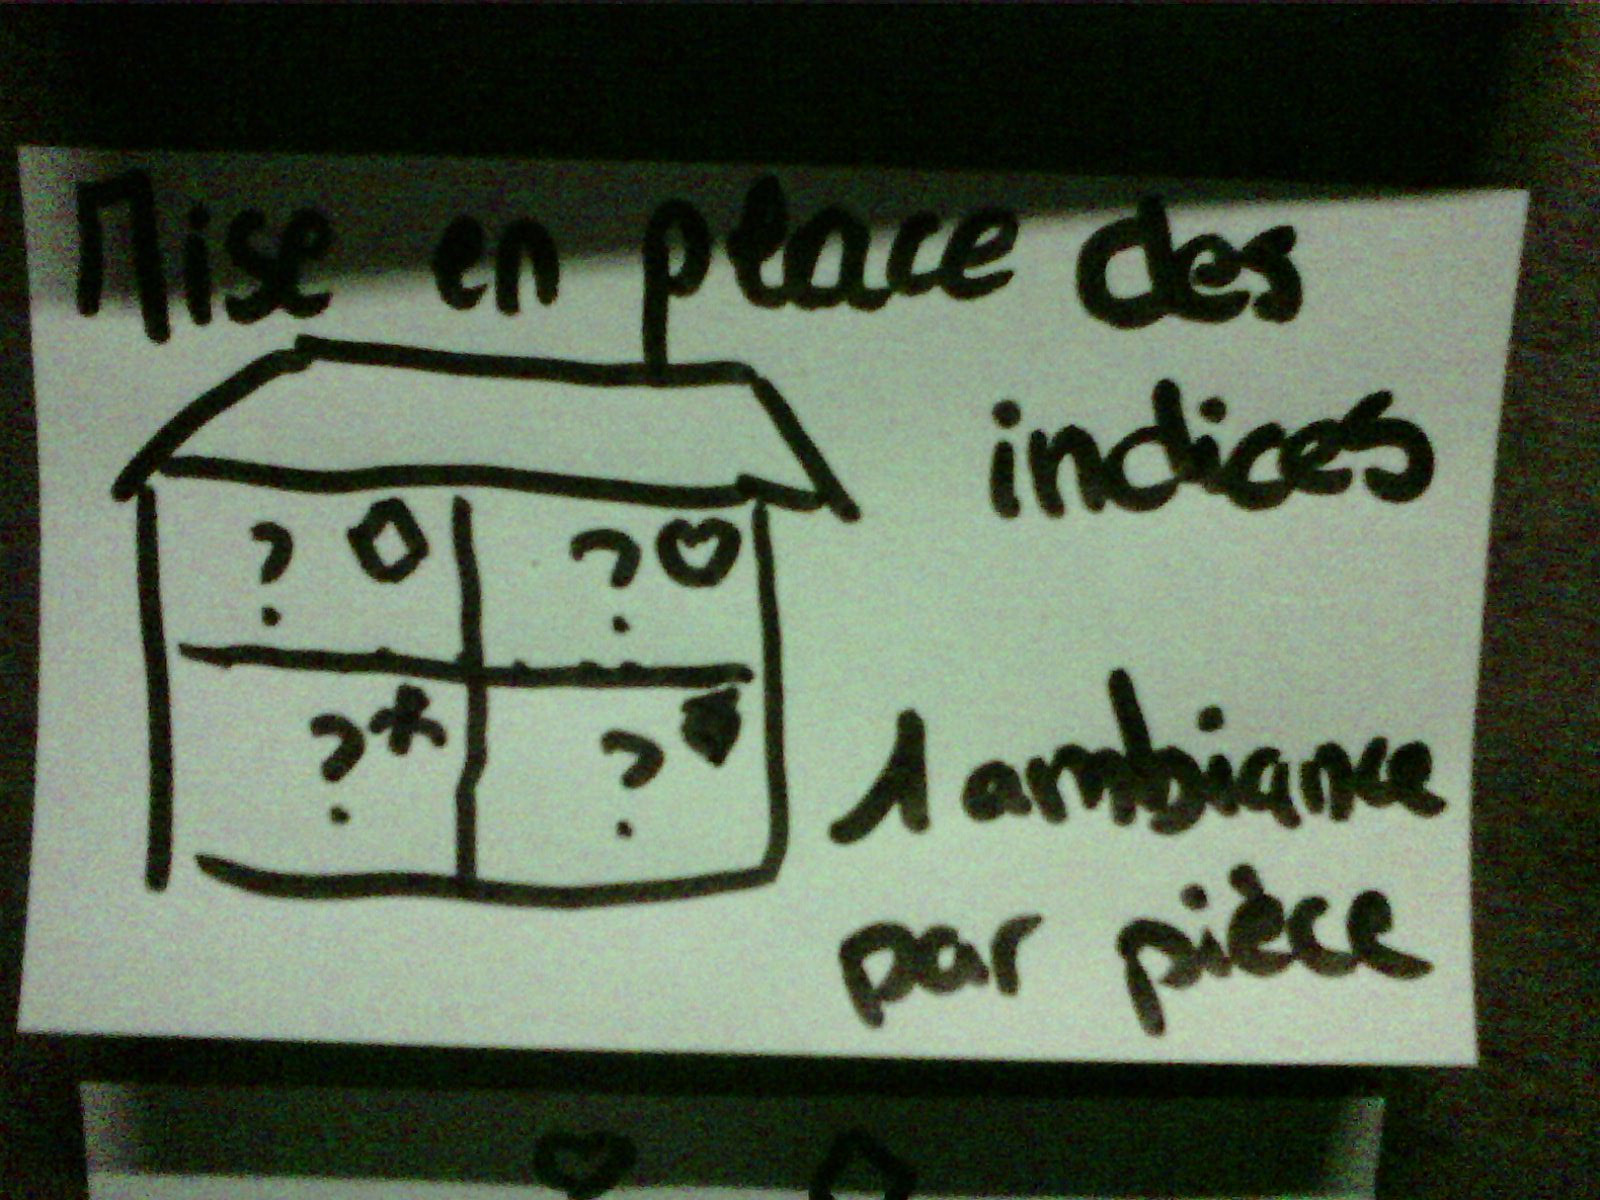 Mise en place des
indices
? ?
? * ?
1 ambiance
par pièce